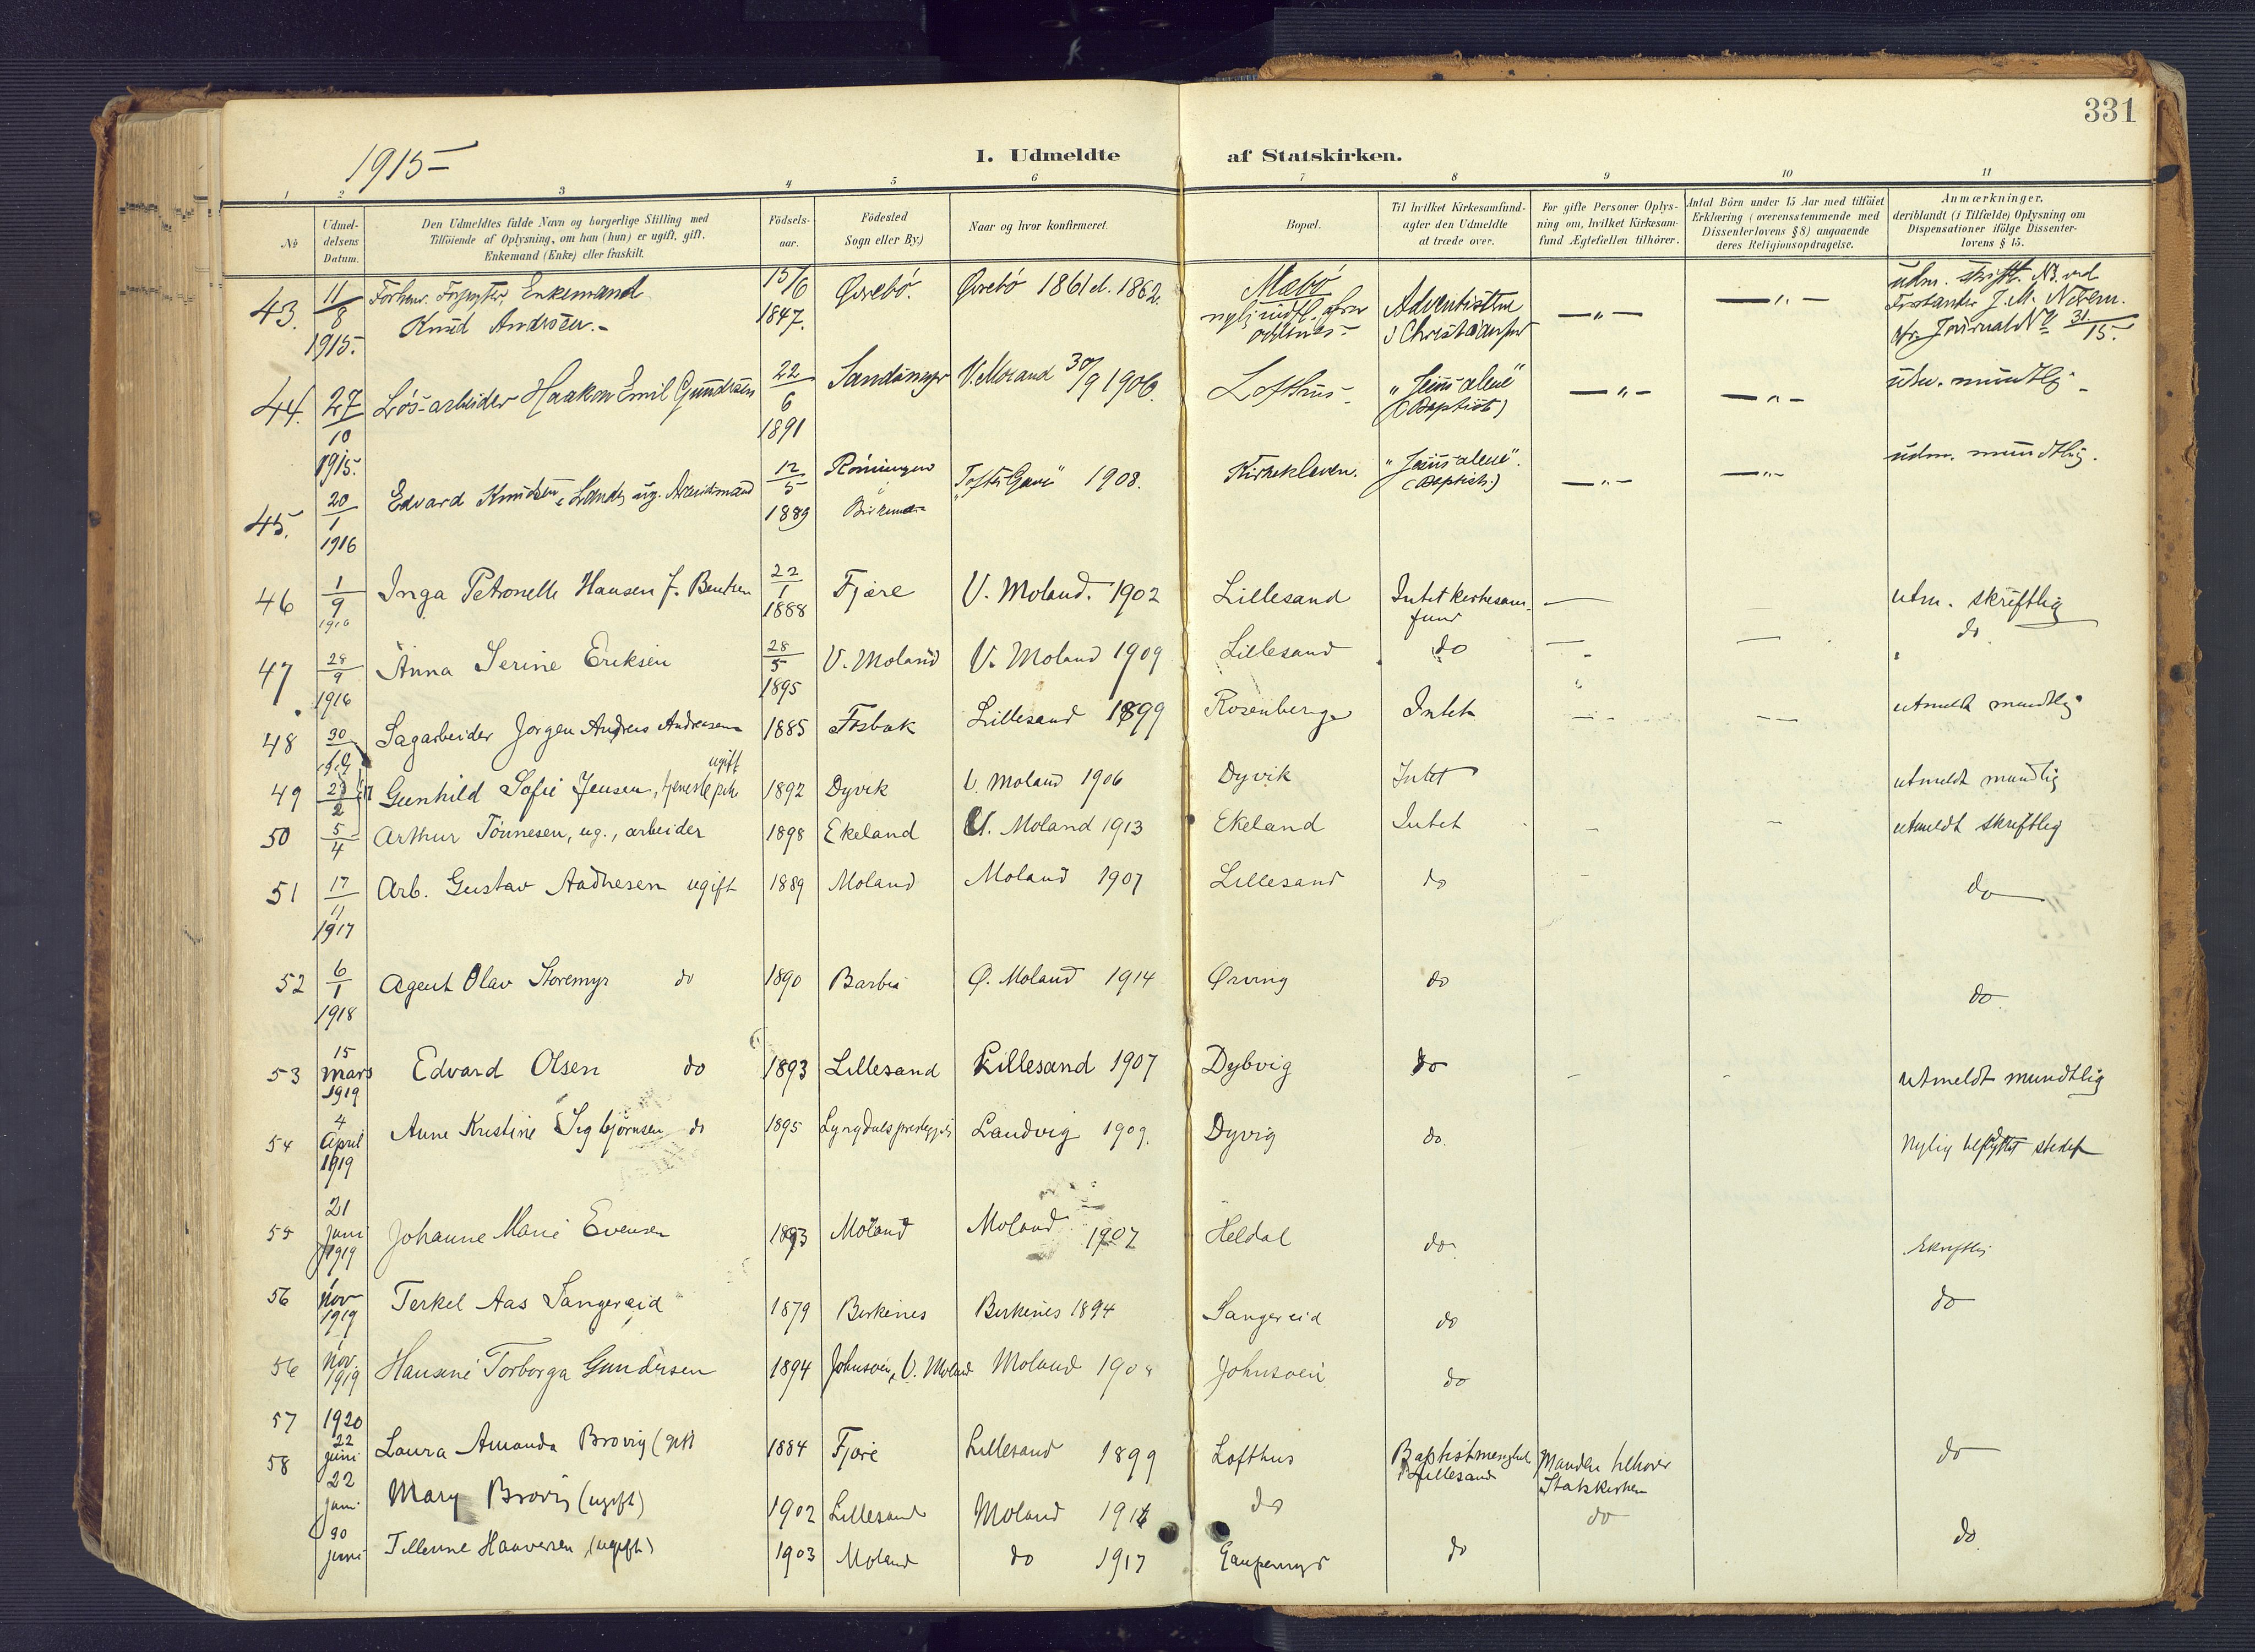 331
1915-
1. Udmeldte af Statskirken.
1 2 3 4 5 6 7 8 9 10 11
No
Udmel-
delsens
Datum.
Den Udmeldtes fulde Navn og borgerlige Stilling med
Tilföiende af Oplysning, om han (hun) er ugift, gift,
Enkemand (Enke) eller fraskilt.
Födsels-
aar.
Födested
Sogn eller By.)
Naar og hvor konfirmeret.
Bopæl.
Til hvilket Kirkesamfund-
agter den Udmeldte
at træde over.
For gifte Personer Oplys-
ning om, hvilket Kirkesam-
fund Ægtefællen tilhörer.
Antal Börn under 15 Aar med tilföiet
Erklæring (overensstemmende med
Dissenterlovens § 8) angaaende
deres Religionsopdragelse.
Anmærkninger,
deriblandt (i Tilfælde) Oplysning om
Dispensationer ifölge Dissenter-
lovens § 15.
43. 11/8 1915. Enkemand
Knud 15/6 1847. Øvrebö. Øvrebö 1861 el. 1862.
Adventisterne
i Christiansand
31/15.
44. 27/10 1915. Lös-arbeider Haakon Emil Gundersen 22/6 1891 V. Moland 30/9 1906. Lofthus - "Jesus alene"
(Baptist)
udm. mundtlig -
45. 20/1 1916 Edvard Knudsen 12/5 1889 1908. Kirkekleven. "Jesus alene".
(Baptist.)
udm. mundtlig.
46 1/9 1916 Inga Petronelle Hansen f. Bentsen 22/1 1888 Fjære V. Moland. 1902 Lillesand Intet kirkesam-
fund
utm. skriftlig
47 28/9 1916 Anna Serine Eriksen 28/5 1895 V. Moland V. Moland 1909 Lillesand do do
48 30/ Sagarbeider Jørgen Andreas Andreasen 1885 Fosbæk Lillesand 1899 Rosenberg Intet utmeldt mundtlig
ugift
49 Gunhild Sofie Jensen, tjenestepike 1892 Dyvik V. Moland 1906 Dyvik Intet utmeldt mundtlig
50 5/4 Arthur Tönnesen, ug., arbeider 1898 Ekeland V. Moland 1913 Ekeland Intet utmeldt skriftlig
51 17/11 1917 Arb. Gustav Aadnesen ugift 1889 Moland Moland 1907 Lillesand do do
52 6/1 1918 Agent Olav Storemyr do 1890 Barbu Ø. Moland 1914 do do
53 15 mars 1919 Edvard Olsen do 1893 Lillesand Lillesand 1907 Dybvig do utmeldt mundtlig
54 4 April 1919 Anne Kristine Sigbjörnsen do 1895 Landvig 1909. Dyvig do. Nylig
55 21 juni 1919 Johanne Marie Evensen 1893 Moland Moland 1907 Heldal do. skriftlig
56 1 nov 1919 Terkel Aas Sangereid 1879 Birkenes Birkenes 1894 Sangereid do do
56 1 nov. 1919 Hansine Torborga Gundersen 1894 Johnsvei, V. Moland Moland Johnsvei do
57 1920
22 juni Laura Amanda Brovig (gift 1884 Fjære Lillesand 1899 Lofthus Baptistmenighed
i Lillesand
Manden tilhører
Statskirken
do
58 22 juni Mary Brovig (ugift) 1902 Lillesand Moland 1916 do do
30 juni Tellevine Haaversen (ugift) 1903 Moland do 1917 do do.